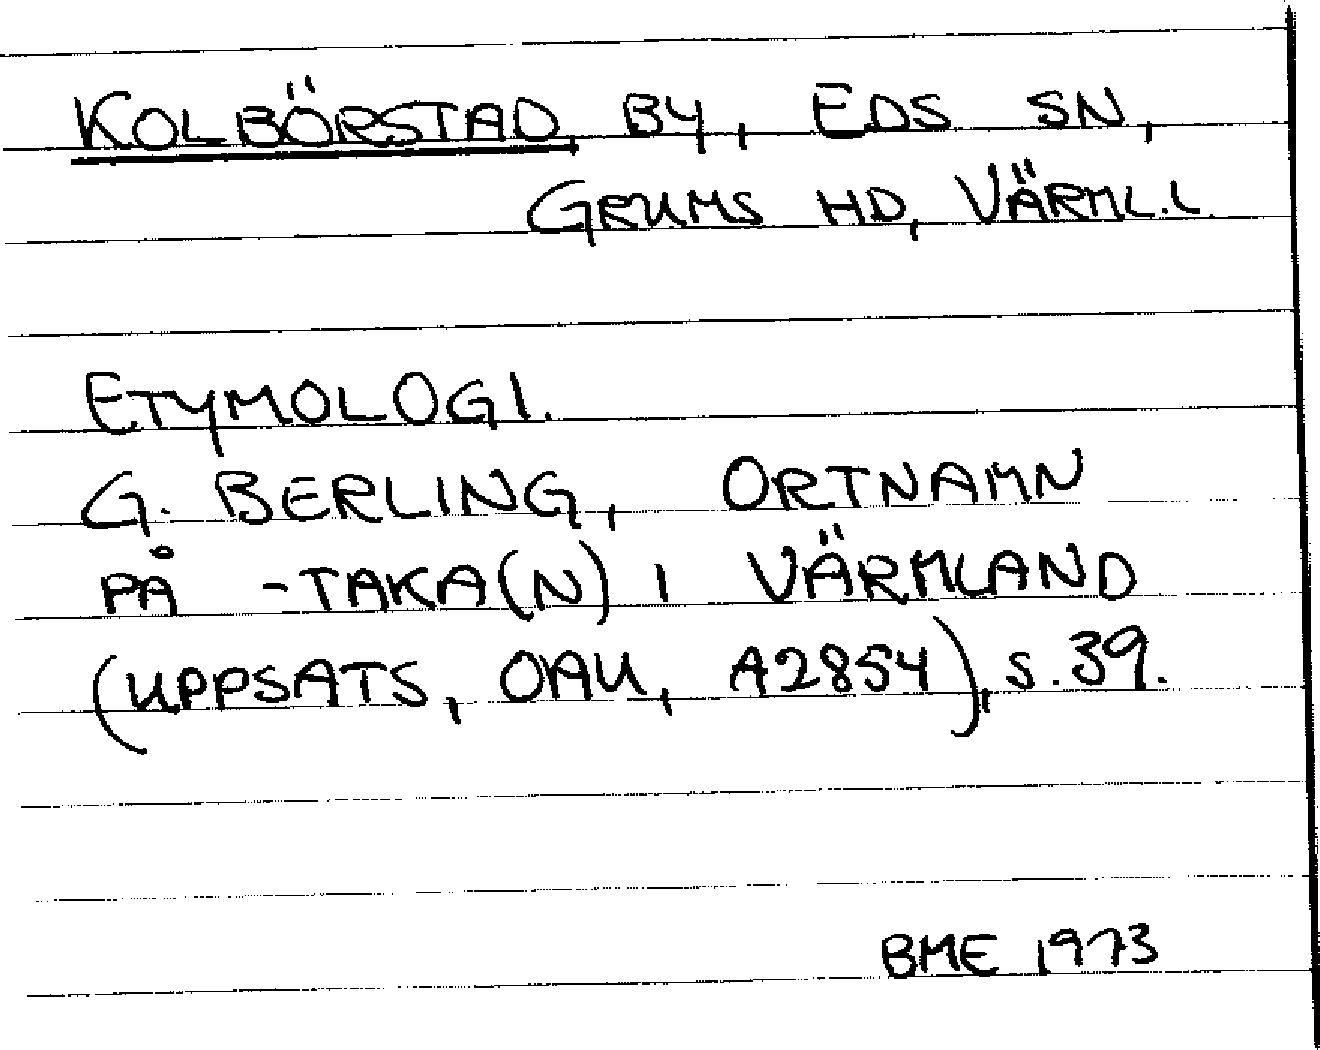 KOLBÖRSTAD, BY, EDS SN,
GRUMS HD, VÄRML.L.
ETYMOLOGI.
G. BERLING, ORTNAMN
PÅ -TAKA(N) I VÄRMLAND
(UPPSATS, OAU, A2854), S. 39.
BME 1973